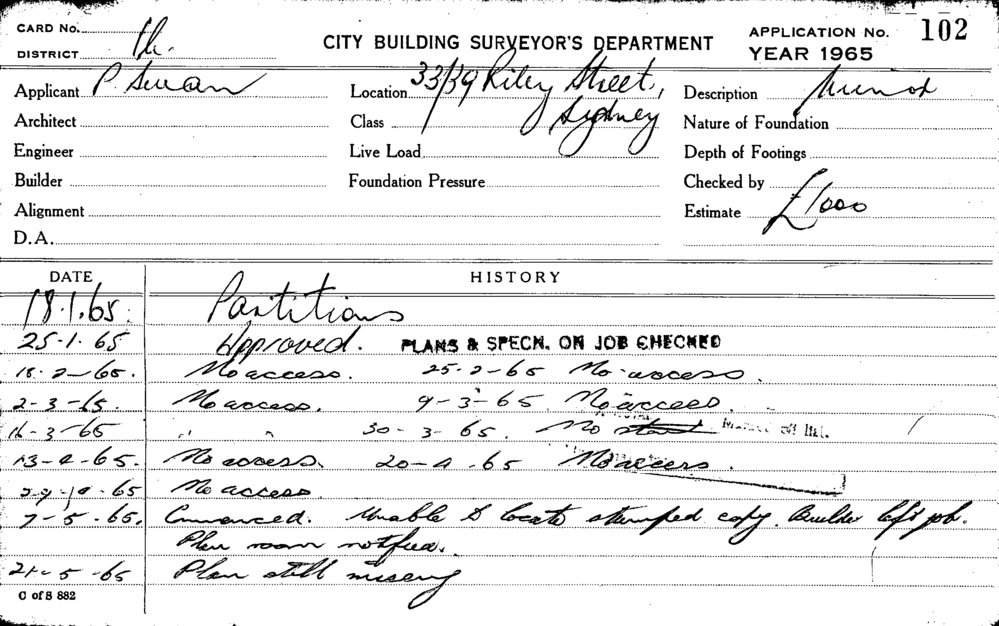 CARD No.
DISTRICT
CITY BUILDING SURVEYOR'S DEPARTMENT
APPLICATION No. 102
YEAR 1965
Applicant P. Swan
Location 33/39 Riley Street,
Sydney
Description
Architect
Class
Nature of Foundation
Engineer
Live Load
Depth of Footings
Builder
Foundation Pressure
Checked by
Alignment
Estimate £1000
D.A.
DATE HISTORY
18.1.65. Partitions
25-1-65 Approved. PLANS & SPECN. ON JOB CHECKED
18-2-65. No access. 25-2-65 No access.
2-3-65. No access. 9-3-65 No access.
16-3-65 " " 30-3-65. No start
13-4-65. No access. 20-4-65 No access.
65 No access
7-5-65. Commenced. Unable to locate stamped copy. Builder left job.
Plan room notified.
21-5-65 Plan still missing
C of S 882